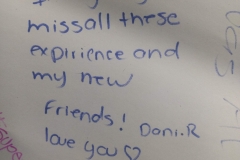 missall these
expirience and
my new
Friends! Dani.R
love you ♡